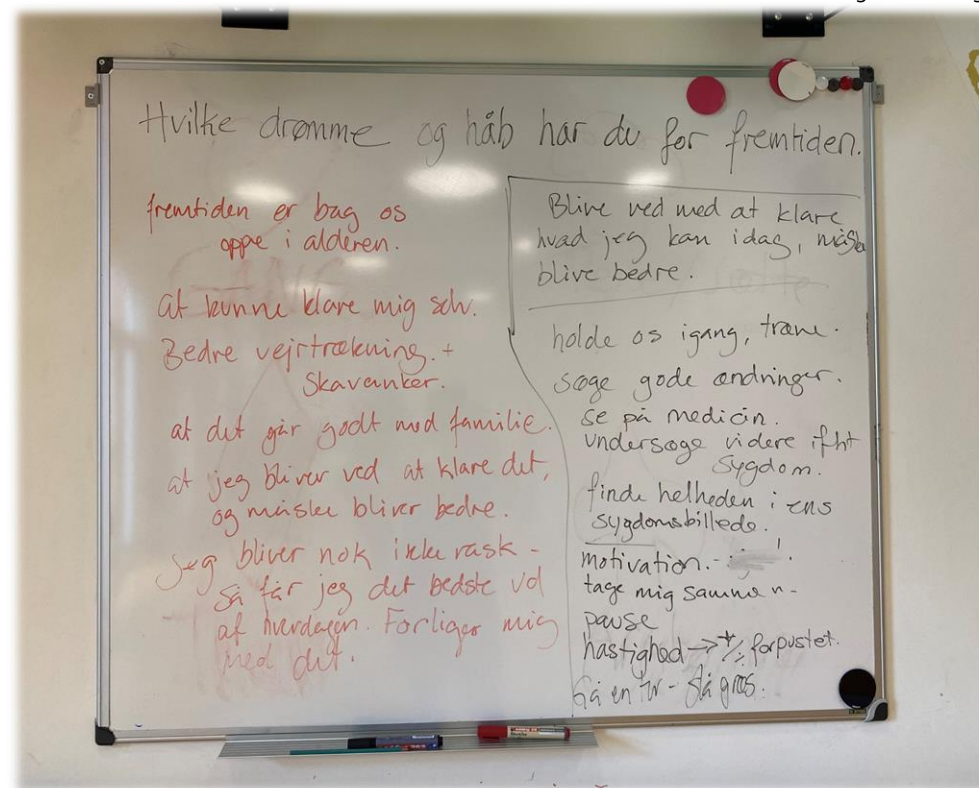 Hvilke drømme og håb har du for fremtiden.
fremtiden er bag os
oppe i alderen.
at kunne klare mig selv.
Bedre vejrtrækning. +
Skavanker.
at det går godt med familie.
at jeg bliver ved at klare det,
og måske bliver bedre.
Jeg bliver nok ikke rask -
så får jeg det bedste ud
af hverdagen. Forliger mig
med det.
Blive ved med at klare
hvad jeg kan idag, måske
blive bedre.
holde os igang, træne.
søge gode ændringer.
se på medicin.
undersøge videre ifht
sygdom.
finde helheden i ens
sygdomsbillede.
motivation. -
tage mig sammen -
pause
hastighed → +/- forpustet.
Gå en tur - slå græs.